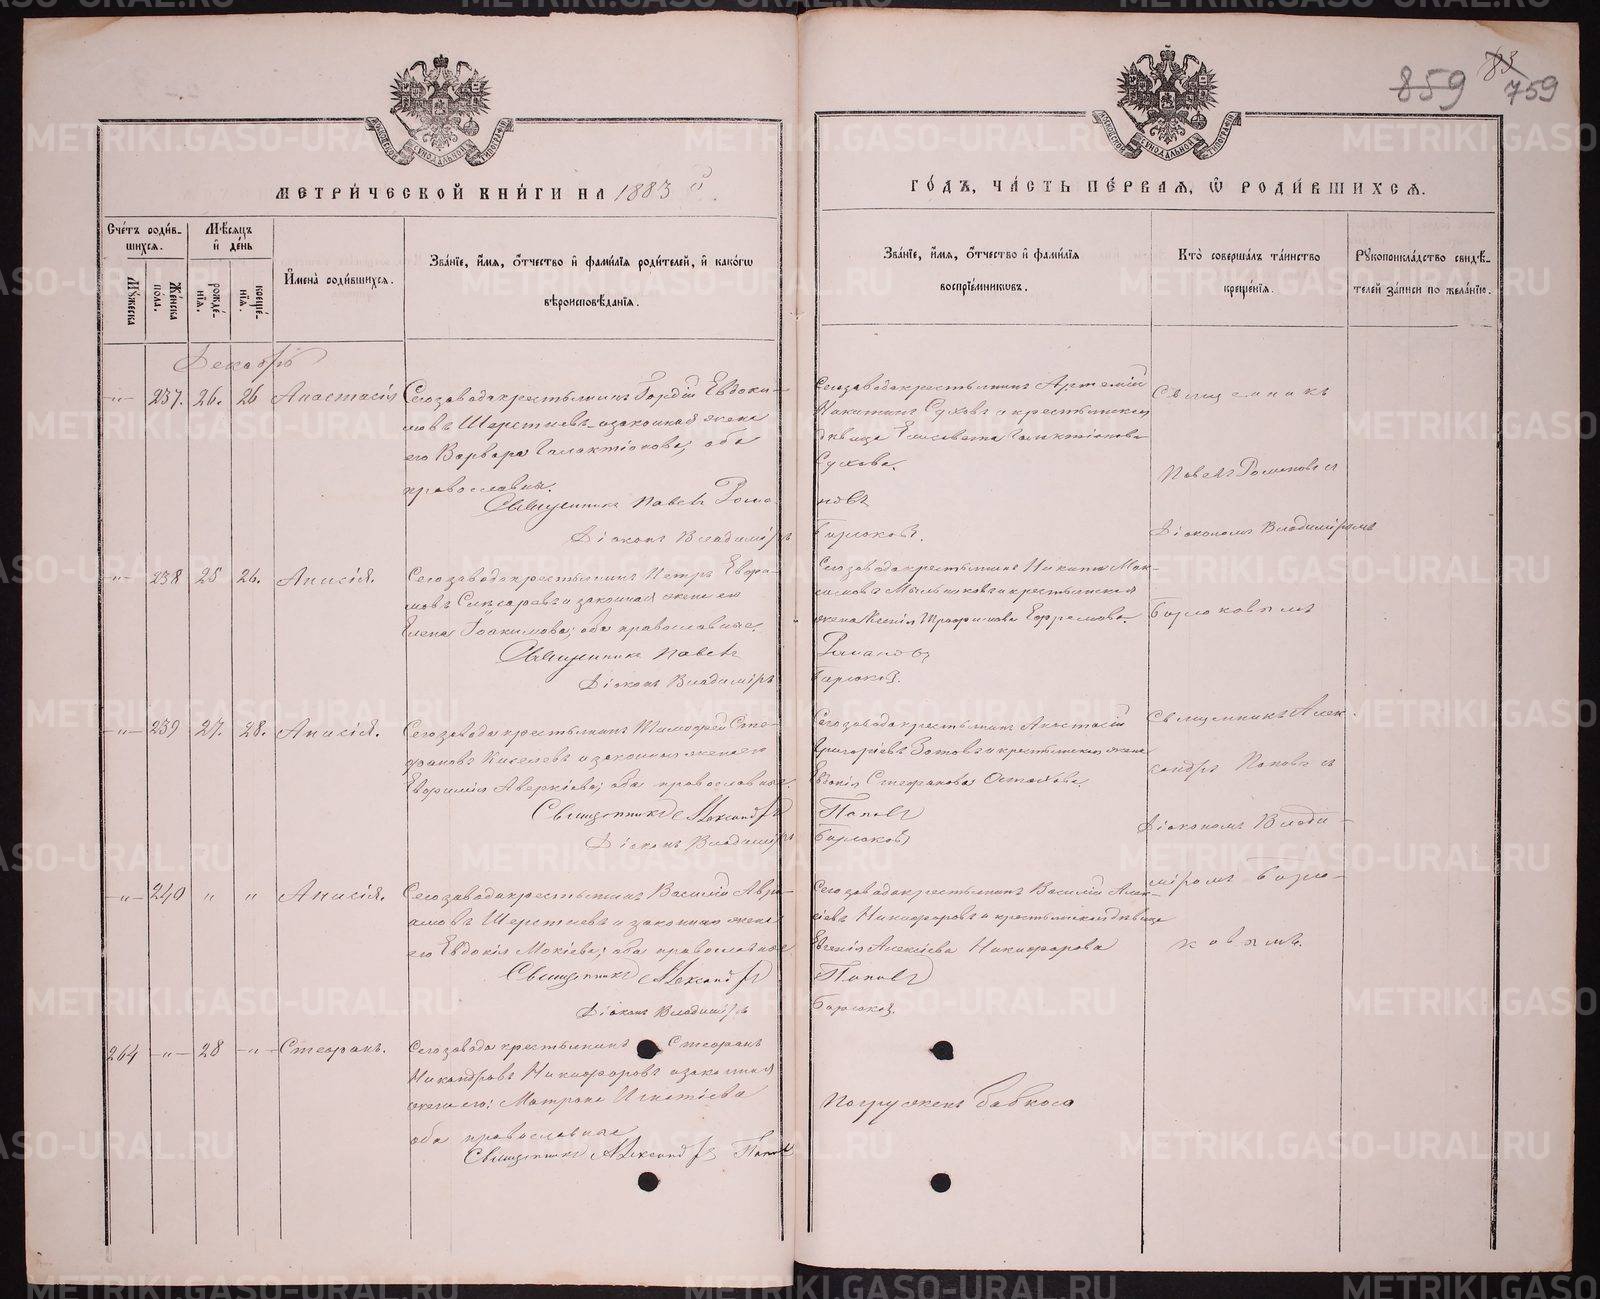 859 83 759
МЕТРИ́ЧЕСКОЙ КНИ́ГИ НА 1883 й
ГО́ДЪ, ЧА́СТЬ ПЕ́РВАЯ, Ѿ РОДИ́ВШИХСЯ.
Сче́тъ роди́в-
шихся.
Му́жеска
Же́нска
по́ла.
Мѣ́сяцъ
и҆ де́нь
рожде́-
нія.
креще́-
нія.
И҆мена̀ роди́вшихся.
Зва́ніе, и҆́мя, ѻ҆́тчество и҆ фами́лія роди́телей, и҆ како́гѡ
вѣроисповѣ́данія.
Зва́ніе, и҆́мя, ѻ҆́тчество и҆ фами́лія
воспріе́мниковъ.
Кто̀ соверша́лъ та́инство
креще́нія.
Рꙋкоприкла́дство свидѣ́-
телей за́писи по жела́нію.
Декабрь
-"- 237. 26. 26 Анастасія
Сегозавода крестьянинъ Гордій Евдоки-
мовъ Шерстневъ и законная жена
его Варвара Галактіонова; оба
православные.
Священникъ Павелъ Рома-
Діаконъ Владиміръ
Сегозавода крестьянинъ Артемій
Никитинъ Суховъ и крестьянская
дѣвица Елисавета Галактіонова
Сухова.
новъ
Бирюковъ.
Священникъ
Павелъ Романовъ и
Діакономъ Владиміромъ
Бирюковымъ
-"- 238 25 26. Анисія.
Сегозавода крестьянинъ Петръ Евфра-
мовъ Слесаревъ и законная жена его
Елена Іоакимова; оба православные.
Священникъ Павелъ
Діаконъ Владиміръ
Сегозавода крестьянинъ Никита Мак-
симовъ Мыльниковъ и крестьянская
жена Ксенія Трофимова Ефремова.
Романовъ
Бирюковъ.
-"- 239 27. 28. Анисія.
Сегозавода крестьянинъ Тимофей Сте-
фановъ Киселевъ и законная жена его
Евфимія Аверкіева; оба православные.
Священникъ Александръ
Діаконъ Владиміръ
Сегозавода крестьянинъ Анастасій
Григорьевъ Зотовъ и крестьянская жена
Евдокія Стефанова Останова.
Поповъ
Бирюковъ
Священникъ Алек-
сандръ Поповъ и
Діакономъ Влади-
міромъ Бирю-
ковымъ.
-"- 240 " " Анисія.
Сегозавода крестьянинъ Василій Авра-
амовъ Шерстневъ и законная жена
его Евдокія Мокіева; оба православные
Священникъ Александръ
Діаконъ Владиміръ
Сегозавода крестьянинъ Василій Алек-
сіевъ Никифоровъ и крестьянская дѣвица
Евгенія Алексіева Никифорова
Поповъ
Бирюковъ.
264 -"- 28 -"- Стефанъ.
Сегозавода крестьянинъ Стефанъ
Никандровъ Никифоровъ и законная
жена его: Матрона Игнатіева
оба православные
Священникъ Александръ Поповъ
Погруженъ бабкою
METRIKI.GASO-URAL.RU